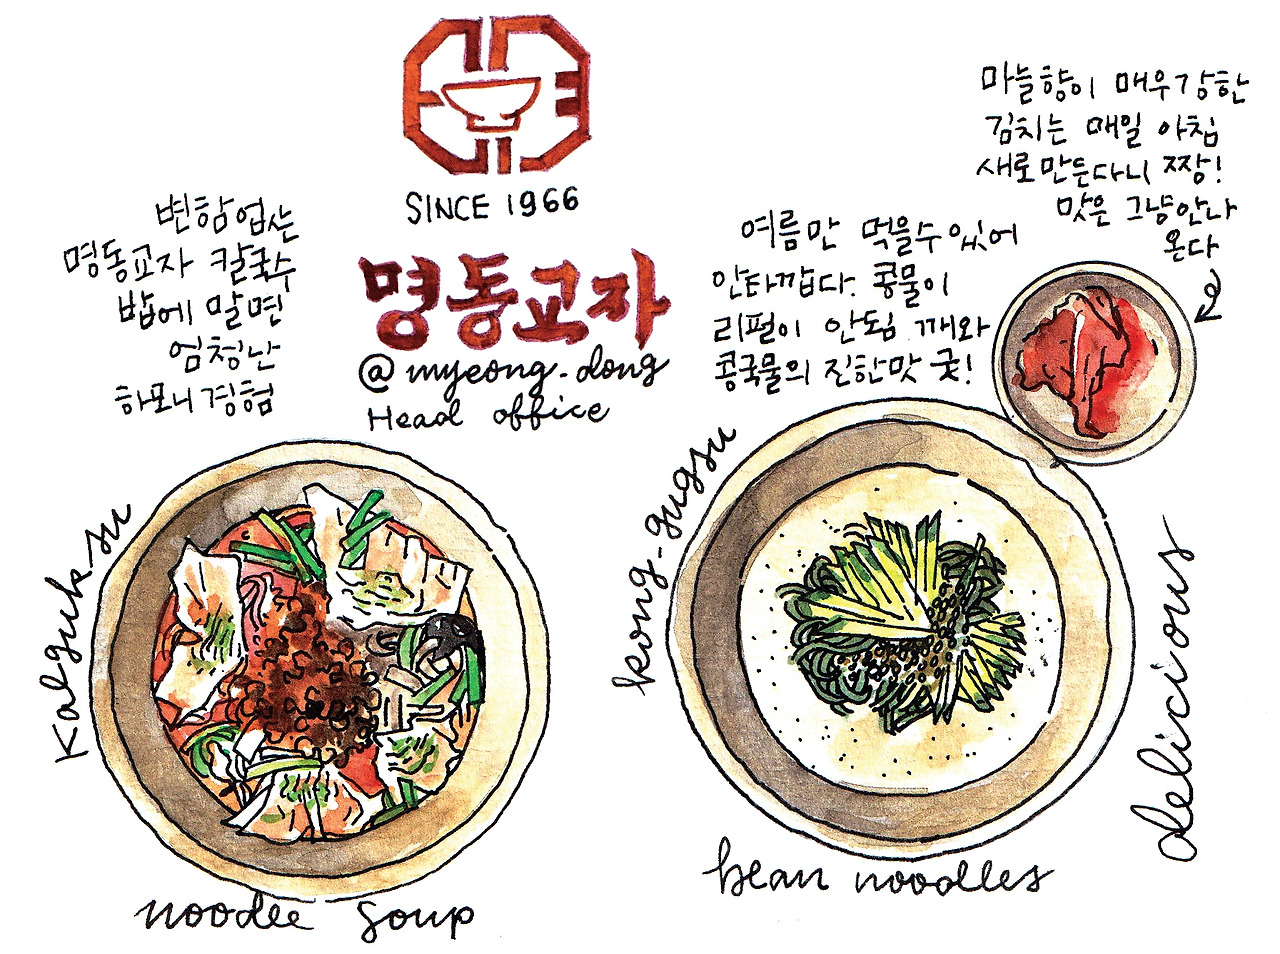 SINCE 1966
명동교자
@ myeong-dong
Head office
변함 없는
명동교자 칼국수
밥에 말면
엄청난
하모니 경험
여름만 먹을수 있어
안타깝다. 콩물이
리필이 안됨 깨와
콩국물의 진한맛 굿!
마늘향이 매우강한
김치는 매일 아침
새로만든다니 짱!
맛은 그냥안나
온다
kalguksu
noodle soup
kong-gugsu
bean noodles
delicious